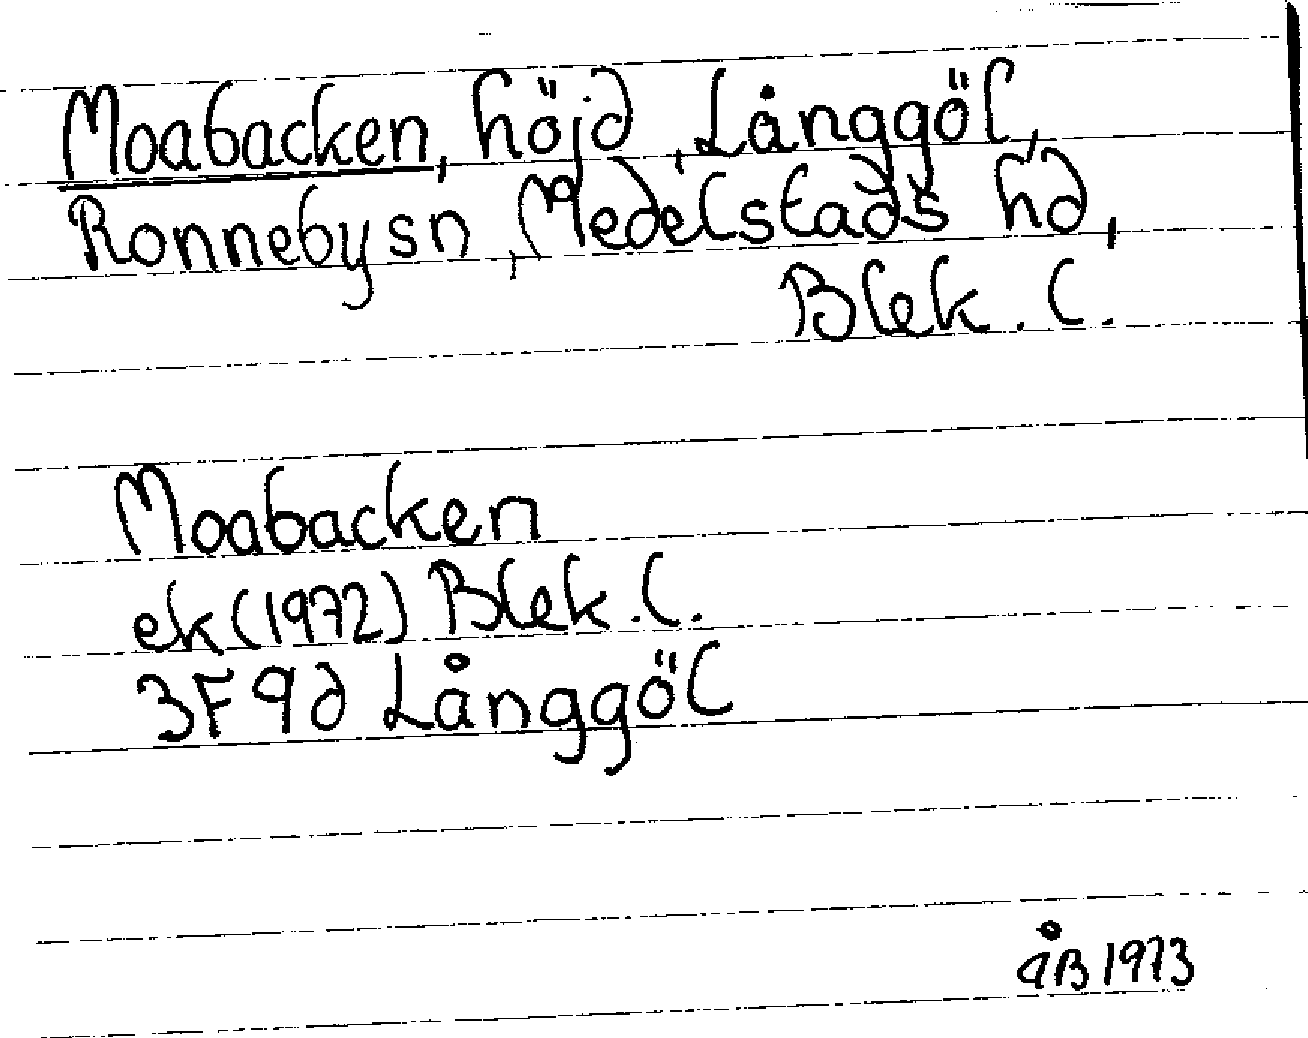 Moabacken, höjd, Långgöl,
Ronnebysn, Medelstads hd,
Blek. l.
Moabacken
ek (1972) Blek. l.
3F 9d Långgöl
åB 1973